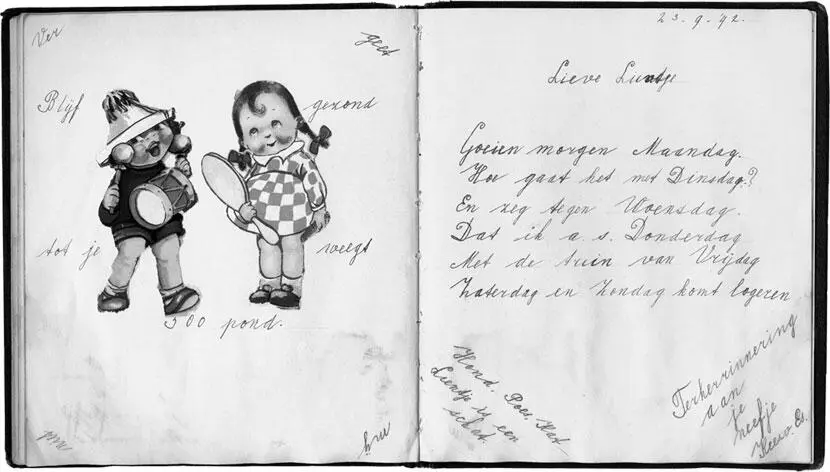 Ver
geet
Blijf
gezond
tot je
weegt
300 pond.
mij
23.9.42.
Lieve Luntje
Goeien morgen Maandag.
Hoe gaat het met Dinsdag?
En zeg tegen Woensdag.
Dat ik a.s. Donderdag
Met de trein van Vrijdag
Zaterdag en Zondag komt logeren
Hond. Poes. Kat
Lientje is een
schat.
Terherrinnering
aan
je
neefje